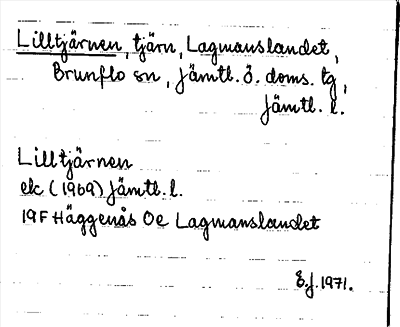 Lilltjärnen, tjärn, Lagmanslandet,
Brunflo sn, Jämtl. ö. doms. tg,
Jämtl. l.
Lilltjärnen
ek (1969) Jämtl. l.
19F Häggenås Oe Lagmanslandet
E.J. 1971.